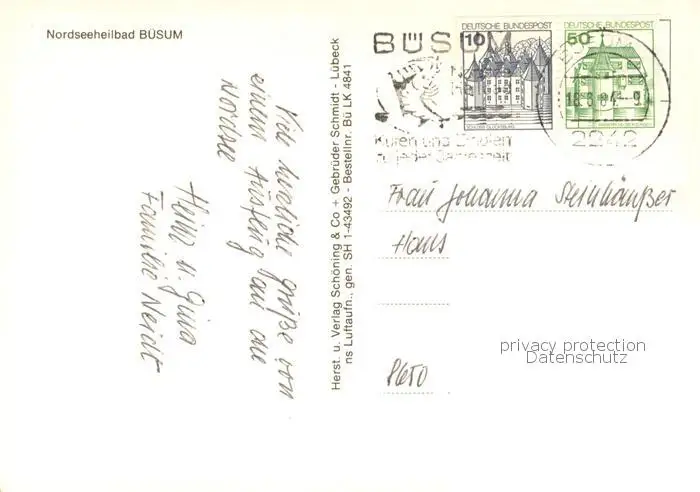 Nordseeheilbad BÜSUM
Viele herzliche Grüße von
einem Ausflug an die
Nordsee
Heinz u. Gina
Familie Neidt
Herst. u. Verlag Schöning & Co + Gebrüder Schmidt - Lübeck
ns Luftaufn., gen. SH 1-43492 - Bestellnr. Bü LK 4841
BÜSUM
Kuren und Erholen
zu jeder Jahreszeit
DEUTSCHE BUNDESPOST
10
SCHLOSS GLÜCKSBURG
DEUTSCHE BUNDESPOST
50
2242
Frau Johanna Steinhäußer
Haus
privacy protection
Datenschutz